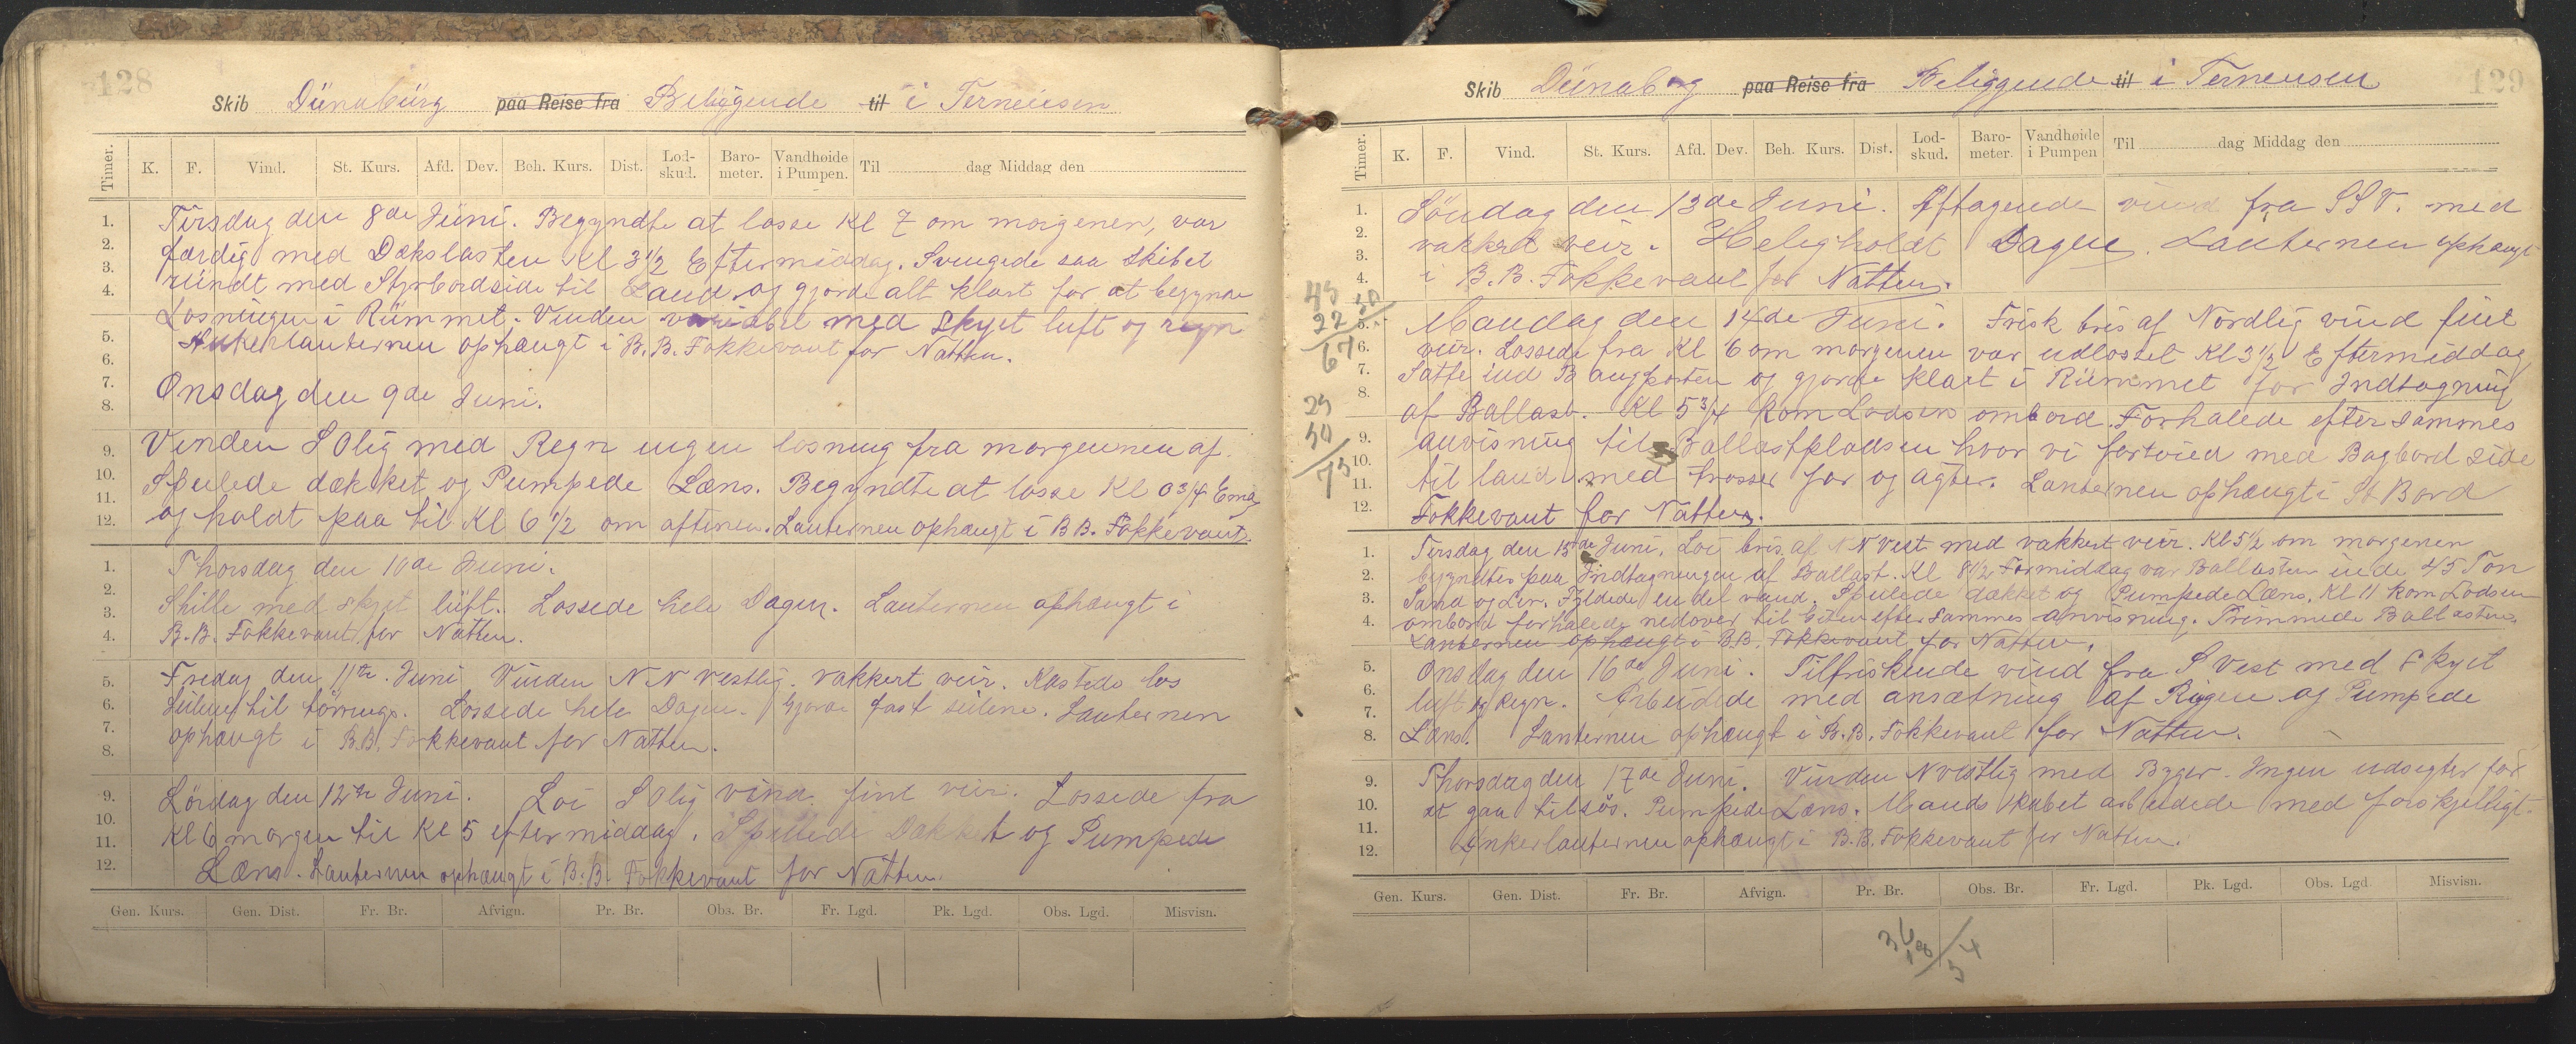 128
Skib Dünabürg paa Reise fra Beliggende til i Terneusen
Timer. K. F. Vind. St. Kurs. Afd. Dev. Beh. Kurs. Dist. Lod-skud. Baro-meter. Vandhøide i Pumpen. Til dag Middag den
1. 2. 3. 4. 5. 6. 7. 8. 9. 10. 11. 12.
Tirsdag den 8de Jüni. Begyndte at losse Kl 7 om morgenen, var
færdig med Dækslasten Kl 3 1/2 Eftermiddag. Svingede saa Skibet
ründt med Styrbordside til Land og gjorde alt klart for at begynde
Losningen i Rümmet. Vinden variabel med Skyet luft og regn
Ankerlanternen ophængt i B.B. Fokkevant for Natten.
Onsdag den 9de Juni.
Vinden SOlig med Regn ingen losning fra morgenen af.
Spulede dækket og Pumpede Læns. Begyndte at losse Kl 0 3/4 Emg
og holdt paa til Kl 6 1/2 om aftenen. Lanternen ophængt i B B. Fokkevant.
1. 2. 3. 4. 5. 6. 7. 8. 9. 10. 11. 12.
Thorsdag den 10de Juni.
Stille med skyet lüft. Lossede hele Dagen. Lanternen ophængt i
B.B. Fokkevant for Natten.
Fredag den 11te Juni Vinden NN Vestlig. vakkert veir. Kastede los
Seilene til törrings. Lossede hele Dagen. Gjorde fast seilene. Lanternen
ophængt i B.B. Fokkevant for Natten.
Lördag den 12te Juni. Loi SOlig vind fint veir. Lossede fra
Kl 6 morgen til Kl 5 eftermiddag. Spulede Dækket og Pumpede
Læns. Lanternen ophængt i B.B. Fokkevant for Natten.
Gen. Kurs. Gen. Dist. Fr. Br. Afvign. Pr. Br. Obs. Br. Fr. Lgd. Pk. Lgd. Obs. Lgd. Misvisn.
129
Skib Dünaborg paa Reise fra Beliggende til i Terneusen
Timer. K. F. Vind. St. Kurs. Afd. Dev. Beh. Kurs. Dist. Lod-skud. Baro-meter. Vandhøide i Pumpen Til dag Middag den
1. 2. 3. 4. 5. 6. 7. 8. 9. 10. 11. 12.
Söndag den 13de Juni. Aftagende vind fra SSV. med
vakkert veir. Heligholdt Dagen. Lanternen ophængt
i B.B. Fokkevant for Natten.
Mandag den 14de Juni. Frisk bris af Nordlig vind fint
veir. Lossede fra Kl 6 om morgenen var udlosset Kl 3 1/2 Eftermiddag
Satte ind Baugporten og gjorde klart i Rümmet for Indtagning
af Ballast. Kl 5 3/4 kom Lodsen ombord. Forhalede efter sammes
anvisning til Ballastpladsen hvor vi fortöied med Bagbord side
til land med trosser for og agter. Lanternen ophængt i St Bord
Fokkevant for Natten.
1. 2. 3. 4. 5. 6. 7. 8. 9. 10. 11. 12.
Tirsdag den 15de Juni. Loi bris af NN Vest med vakkert veir. Kl 5 1/2 om morgenen
begyndtes paa Indtagningen af Ballast. Kl 8 1/2 Formiddag var Ballasten inde 45 Ton
Sand og Ler. Fyldede en del vand. Spulede dækket og Pumpede Læns. Kl 11 kom Lodsen
ombord forhalede nedover til efter sammes anvisning. Trimmede Ballasten.
Lanternen ophængt i B.B. Fokkevant for Natten.
Onsdag den 16de Juni. Tilfriskende vind fra S Vest med skyet
luft og Regn. Arbeidede med ansætning af Rigen og Pumpede
Læns. Lanternen ophængt i B.B. Fokkevant for Natten.
Thorsdag den 17de Juni. Vinden NVestlig med Byger. Ingen udsigter for
at gaa tilsös. Pumpede Læns. Mandskabet arbeidede med forskjelligt.
Ankerlanternen ophængt i B.B. Fokkevant for Natten.
Gen. Kurs. Gen. Dist. Fr. Br. Afvign. Pr. Br. Obs. Br. Fr. Lgd. Pk. Lgd. Obs. Lgd Misvisn.